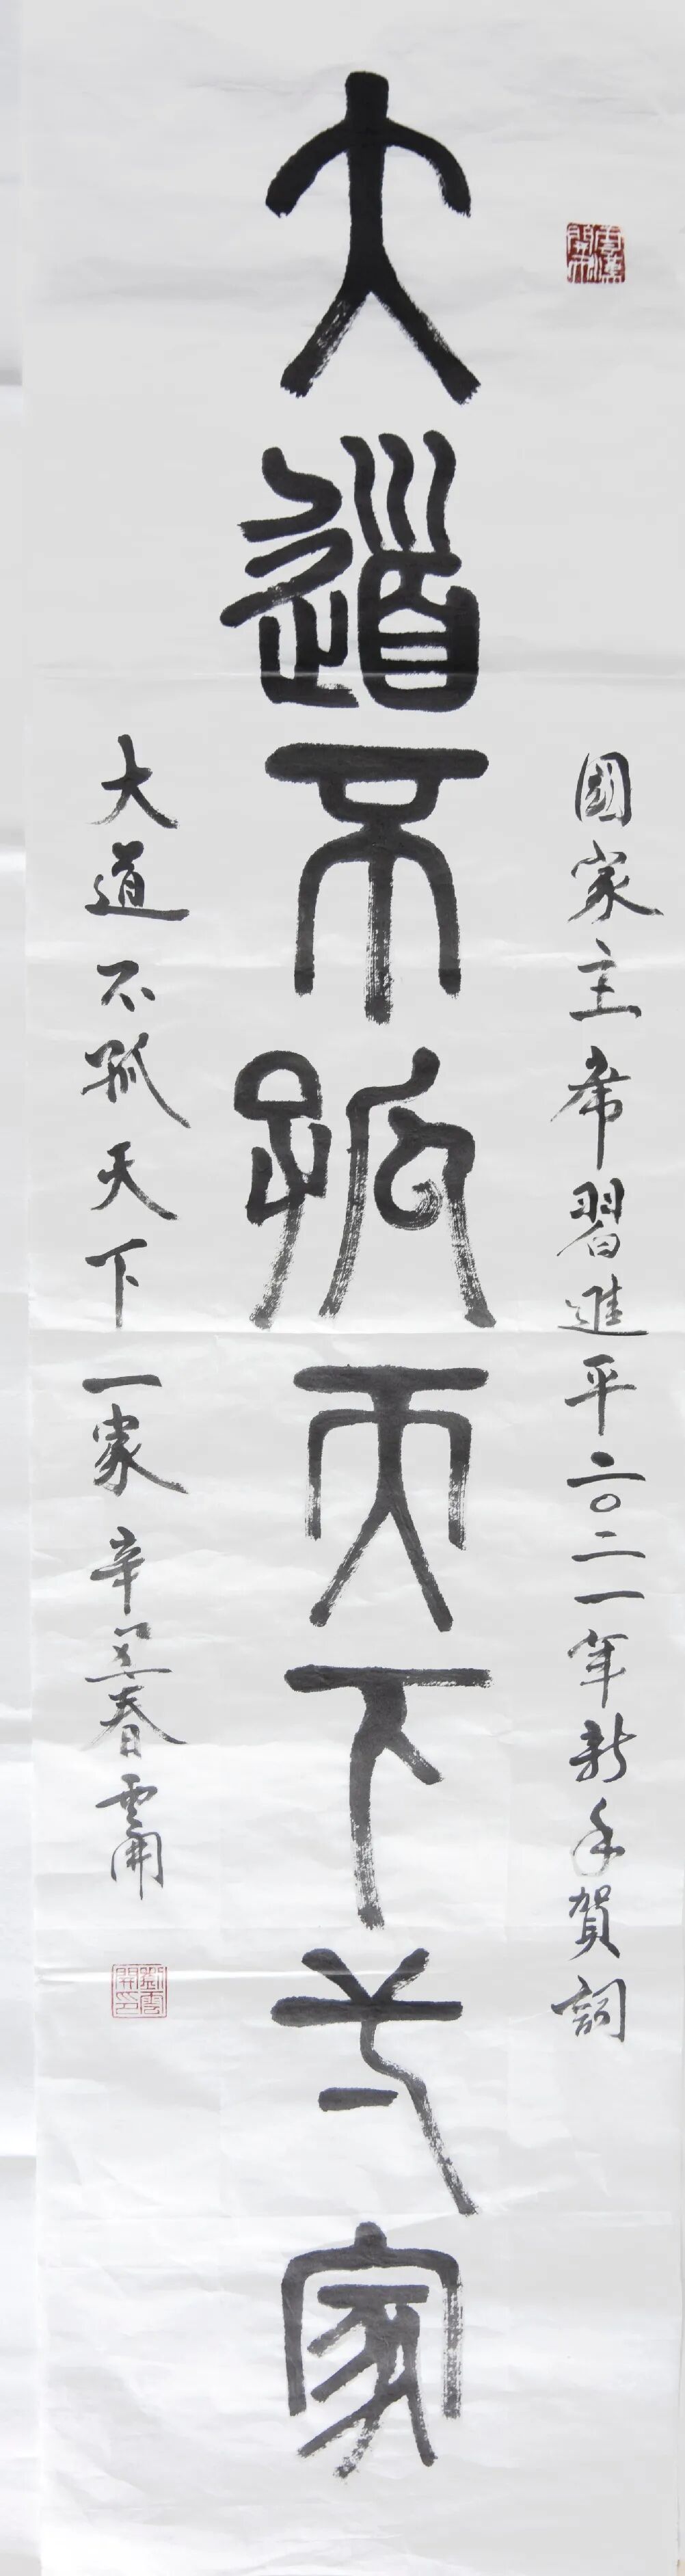 國家主席習進平二〇二一年新年賀詞
大道不孤天下弌家
大道不孤天下一家辛丑春雲開
劉雲開印